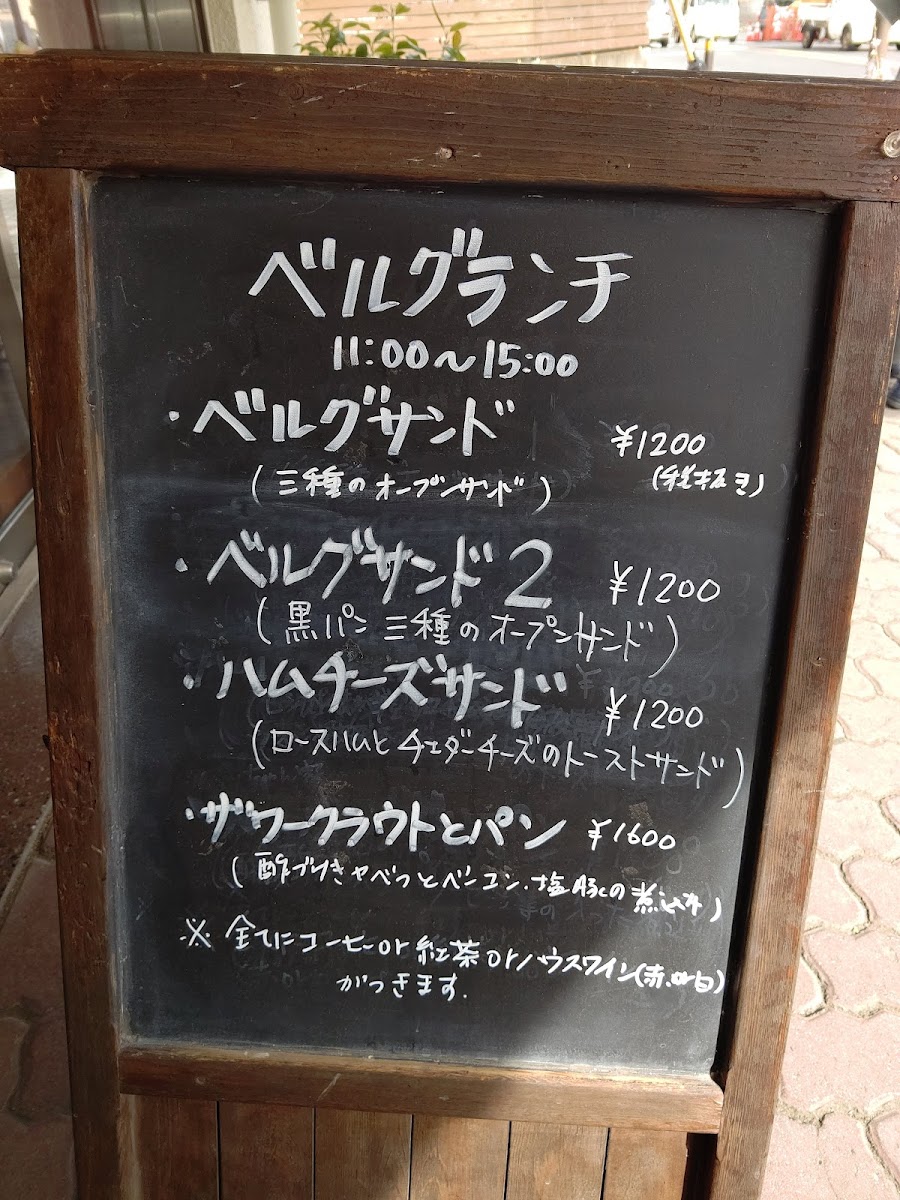 ベルグランチ
11:00〜15:00
・ベルグサンド ¥1200
(三種のオープンサンド) (税抜き)
・ベルグサンド2 ¥1200
(黒パン三種のオープンサンド)
・ハムチーズサンド ¥1200
(ロースハムとチェダーチーズのトーストサンド)
・ザワークラウトとパン ¥1600
(酢づけきゃべつとベーコン、塩豚の煮込み)
※ 全てにコーヒーor紅茶orハウスワイン(赤.or白)
がつきます.